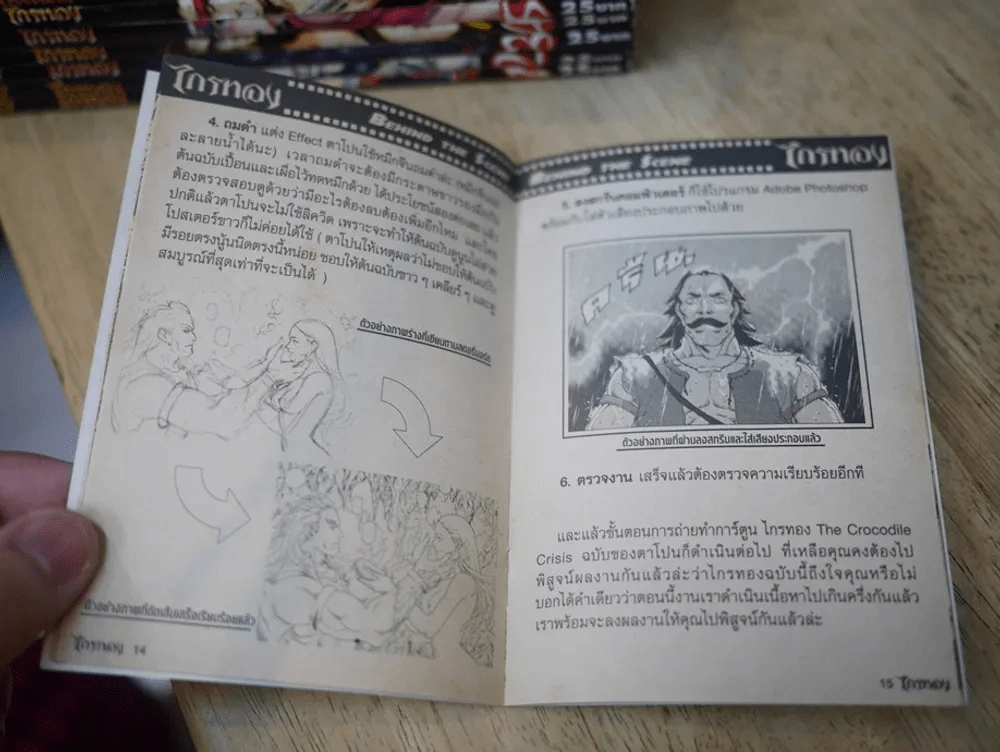 ไกรทอง
25 บาท
25 บาท
ไกรทอง
BEHIND THE SCENE
4. ถมดำ แต่ง Effect ตาโปนใช้หมึกจีนถมดำล่ะ (หมึกจีนไม่
ละลายน้ำได้นะ) เวลาถมดำจะต้องมีกระดาษขาวรองมือกัน
ต้นฉบับเปื้อนและเผื่อไว้ทดหมึกด้วย ได้ประโยชน์สองต่อเลย แล้ว
ต้องตรวจสอบดูด้วยว่ามีอะไรต้องลบต้องเพิ่มอีกไหม และโดย
ปกติแล้วตาโปนจะไม่ใช้ลิควิด เพราะจะทำให้ต้นฉบับดูนูนไม่สวย
โปสเตอร์ขาวก็ไม่ค่อยได้ใช้ ( ตาโปนให้เหตุผลว่าไม่ชอบให้ต้นฉบับ
มีรอยตรงนู้นนิดตรงนี้หน่อย ชอบให้ต้นฉบับขาว ๆ เคลียร์ ๆ และดู
สมบูรณ์ที่สุดเท่าที่จะเป็นได้ )
ตัวอย่างภาพร่างที่เขียนตามสตอรี่บอร์ด
ตัวอย่างภาพที่ตัดเส้นเสร็จเรียบร้อยแล้ว
ไกรทอง 14
BEHIND THE SCENE
ไกรทอง
5. ลงสกรีนคอมพิวเตอร์ ก็ใช้โปรแกรม Adobe Photoshop
พร้อมกับใส่ตัวเสียงประกอบภาพไปด้วย
ตัวอย่างภาพที่ผ่านลงสกรีนและใส่เสียงประกอบแล้ว
6. ตรวจงาน เสร็จแล้วต้องตรวจความเรียบร้อยอีกที
และแล้วขั้นตอนการถ่ายทำการ์ตูน ไกรทอง The Crocodile
Crisis ฉบับของตาโปนก็ดำเนินต่อไป ที่เหลือคุณคงต้องไป
พิสูจน์ผลงานกันแล้วล่ะว่าไกรทองฉบับนี้ถึงใจคุณหรือไม่
บอกได้คำเดียวว่าตอนนี้งานเราดำเนินเนื้อหาไปเกินครึ่งกันแล้ว
เราพร้อมจะลงผลงานให้คุณไปพิสูจน์กันแล้วล่ะ
15 ไกรทอง